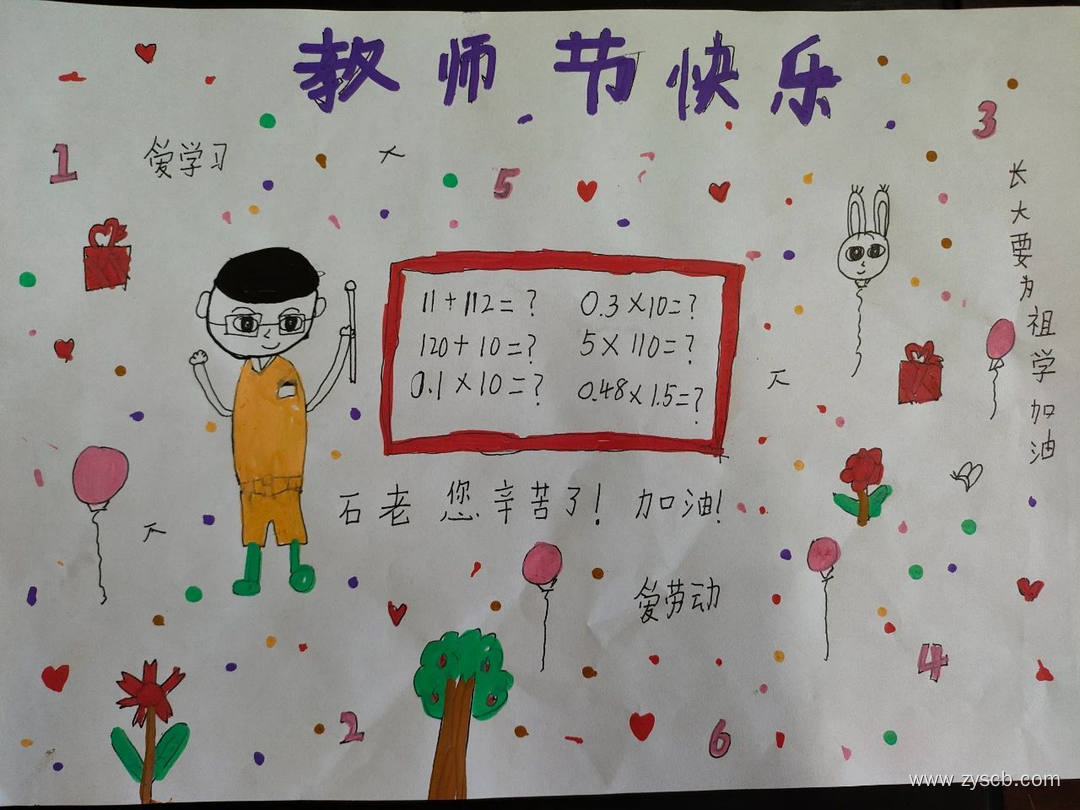 教师节快乐
1
爱学习
5
3
长大要为
祖学加油
11+112=? 0.3×10=?
120+10=? 5×110=?
0.1×10=? 0.48×1.5=?
石老 您辛苦了! 加油!
爱劳动
4
2
6
www.zyscb.com